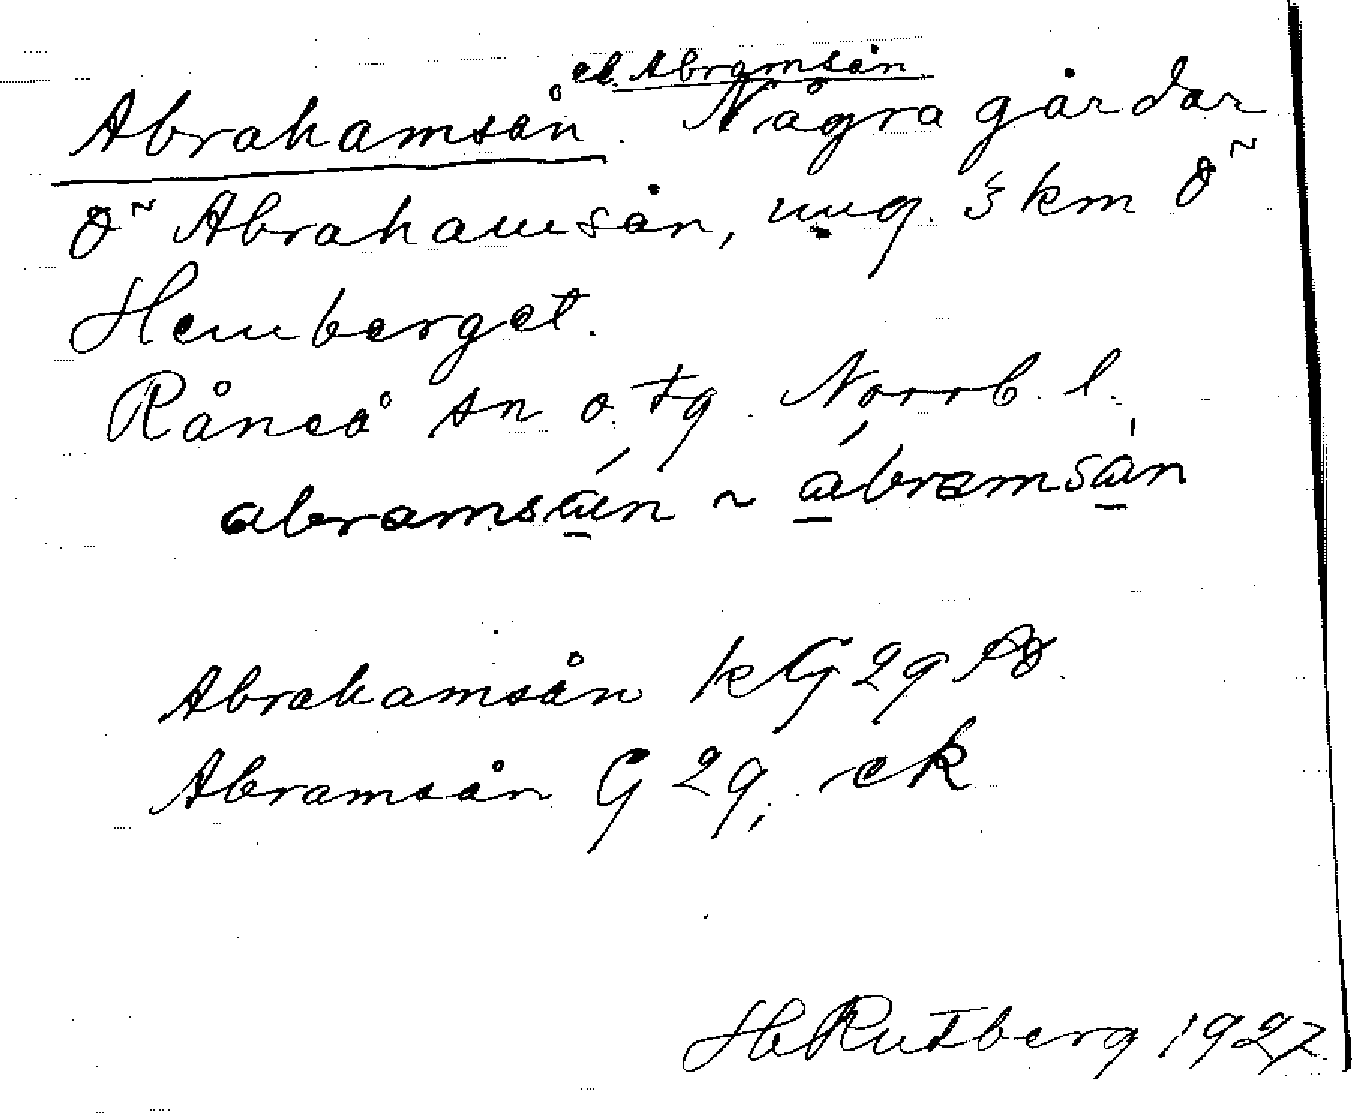 el. Abramsån
Abrahamsån. Några gårdar
Ö~ Abrahamsån, ung. 3 km Ö~
Hemberget.
Råneå sn o. tg. Norrb. l.
abramsán ~ ábramsàn
Abrahamsån k G 2q
Abramsån G 2q, ek
H Rutberg 1927